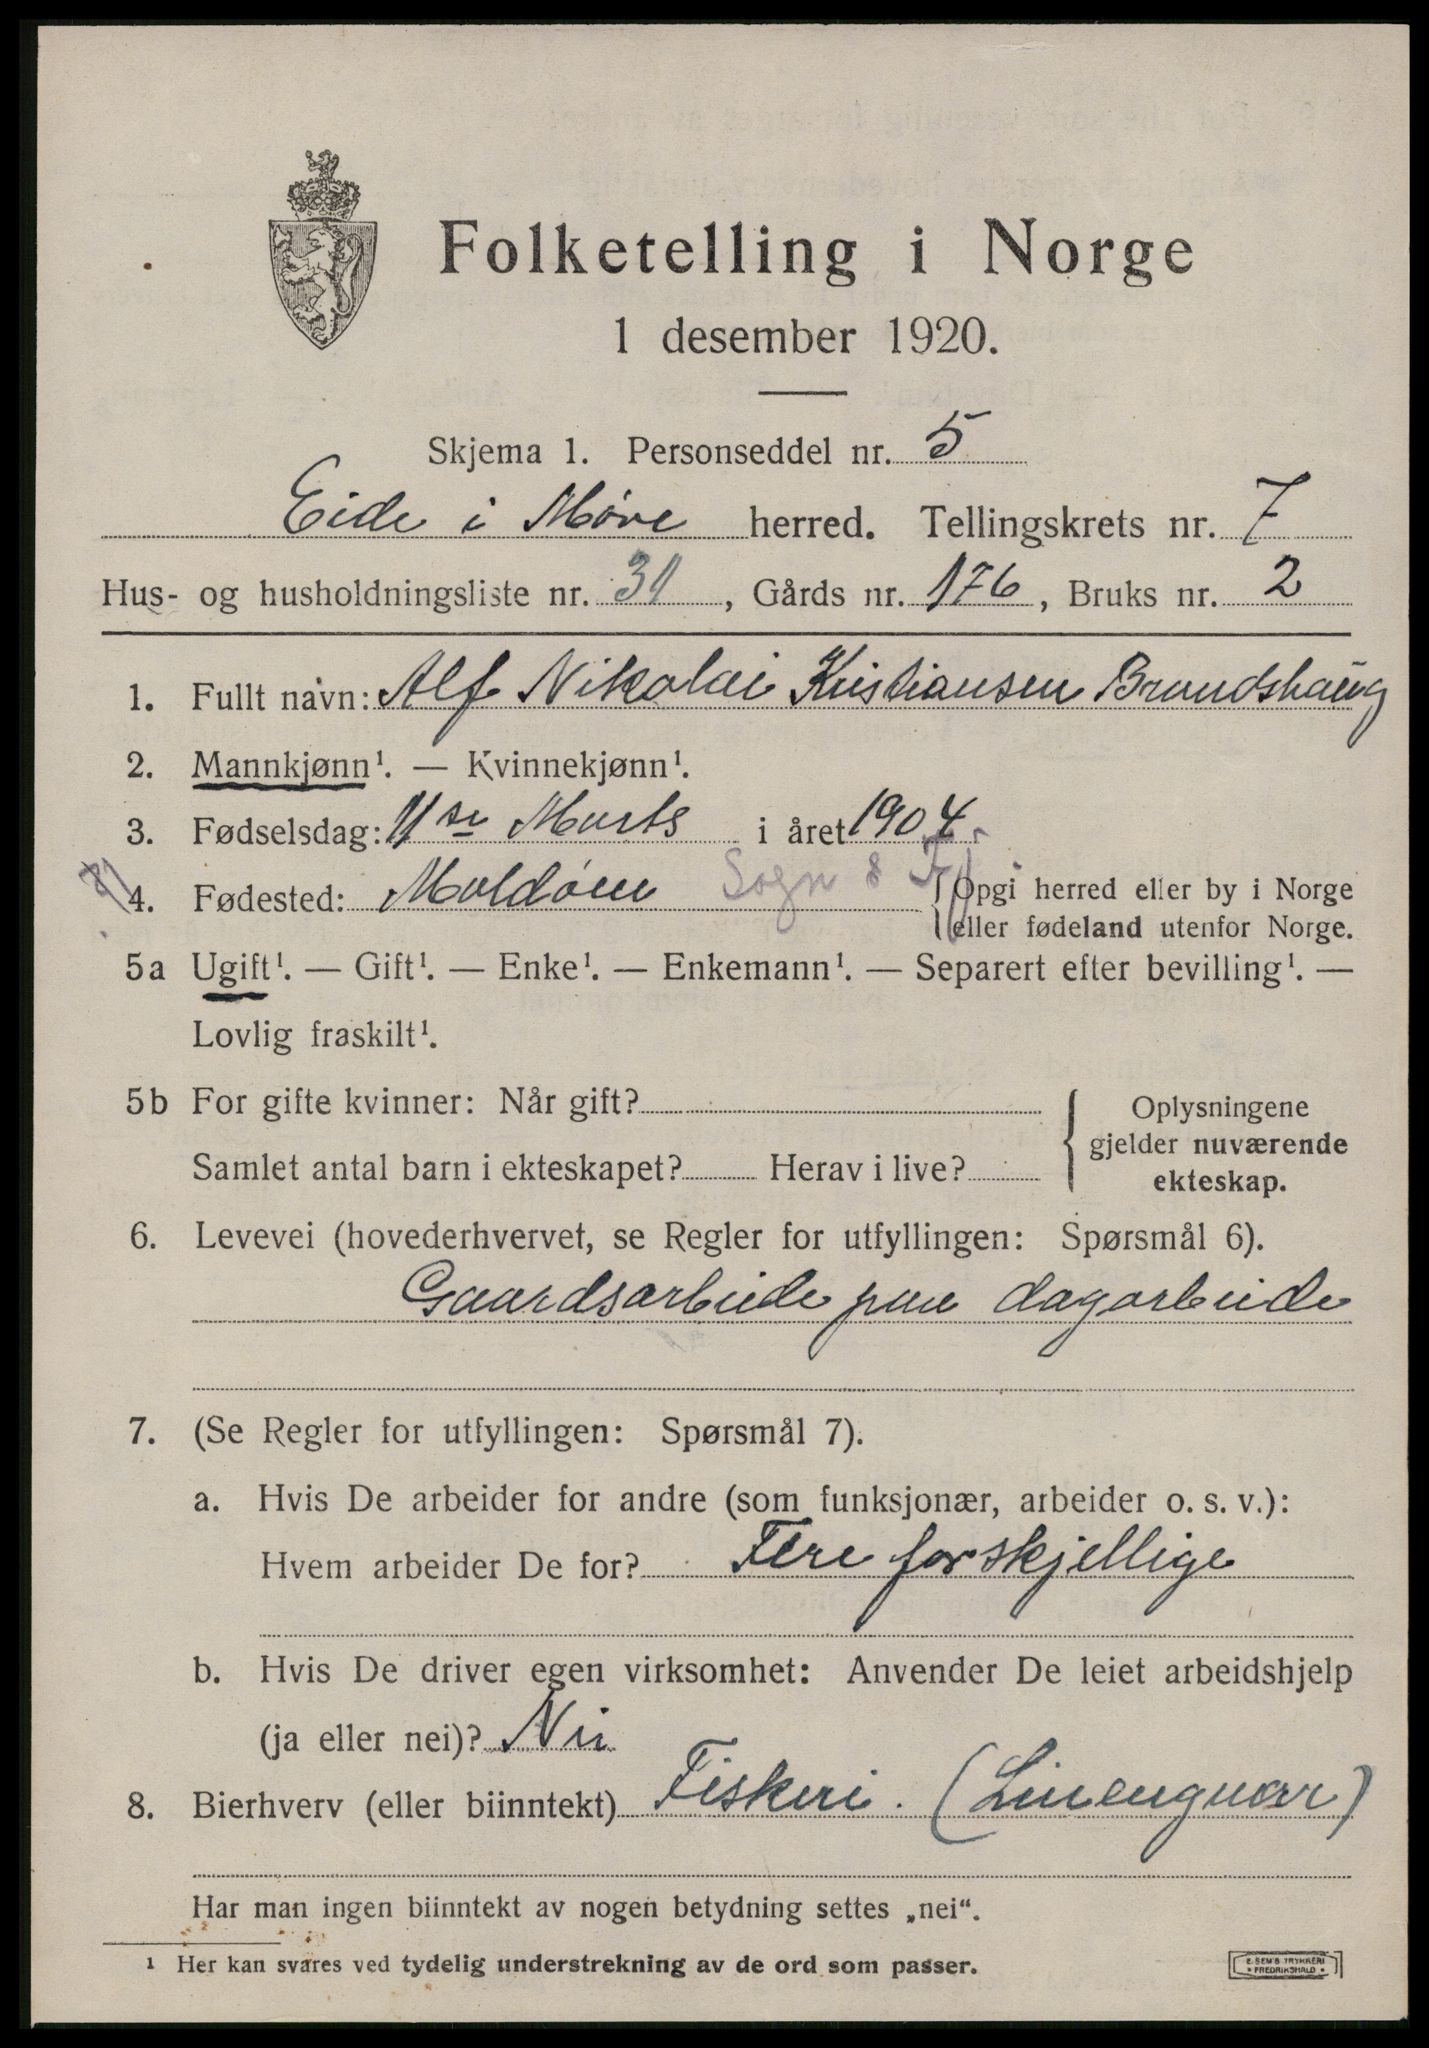 Folketelling i Norge
1 desember 1920.
Skjema 1. Personseddel nr. 5
Eide i Møre herred. Tellingskrets nr. 7
Hus- og husholdningsliste nr. 31, Gårds nr. 176, Bruks nr. 2
1. Fullt navn: Alf Nikolai Kristiansen Brandshaug
2. Mannkjønn¹. — Kvinnekjønn¹.
3. Fødselsdag: 11te Marts i året 1904
4. Fødested: Moldøen Sogn & Fj {Opgi herred eller by i Norge
eller fødeland utenfor Norge.
5a Ugift¹. — Gift¹. — Enke¹. — Enkemann¹. — Separert efter bevilling¹. —
Lovlig fraskilt¹.
5b For gifte kvinner: Når gift? { Oplysningene
gjelder nuværende
Samlet antal barn i ekteskapet? Herav i live?
ekteskap.
6. Levevei (hovederhvervet, se Regler for utfyllingen: Spørsmål 6).
Gaardsarbeide paa dagarbeide
7. (Se Regler for utfyllingen: Spørsmål 7).
a. Hvis De arbeider for andre (som funksjonær, arbeider o. s. v.):
Hvem arbeider De for? Flere forskjellige
b. Hvis De driver egen virksomhet: Anvender De leiet arbeidshjelp
(ja eller nei)? Nei
8. Bierhverv (eller biinntekt) Fiskeri. (Lineegnar)
Har man ingen biinntekt av nogen betydning settes „nei“.
¹ Her kan svares ved tydelig understrekning av de ord som passer.
E. SEM'S TRYKKERI
* FREDRIKSHALD *